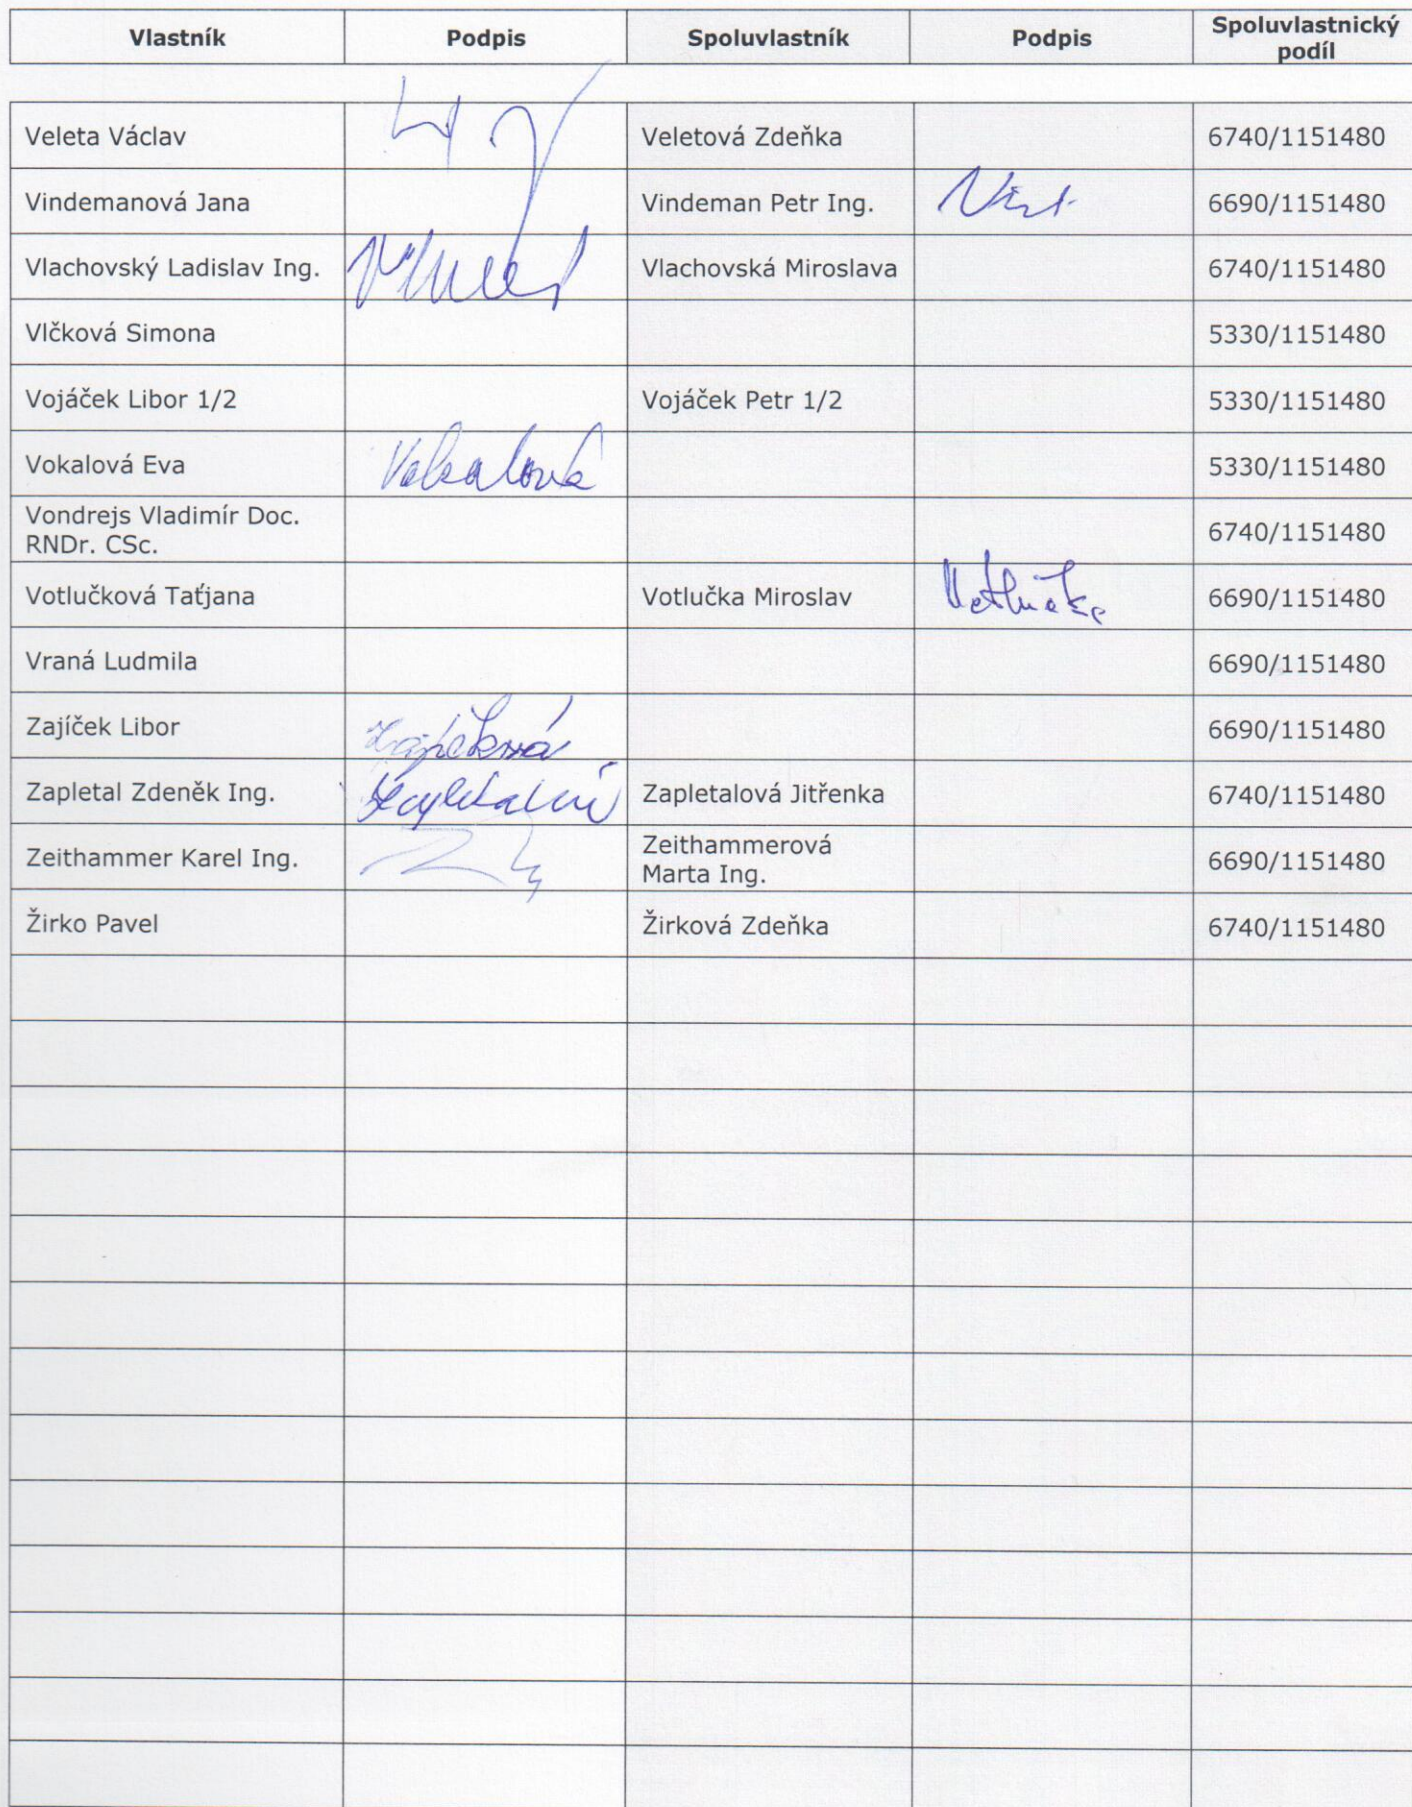 Vlastník Podpis Spoluvlastník Podpis Spoluvlastnický podíl
Veleta Václav Veletová Zdeňka 6740/1151480
Vindemanová Jana Vindeman Petr Ing. 6690/1151480
Vlachovský Ladislav Ing. Vlachovská Miroslava 6740/1151480
Vlčková Simona 5330/1151480
Vojáček Libor 1/2 Vojáček Petr 1/2 5330/1151480
Vokalová Eva Vokalová 5330/1151480
Vondrejs Vladimír Doc.
RNDr. CSc. 6740/1151480
Votlučková Taťjana Votlučka Miroslav Votlučka 6690/1151480
Vraná Ludmila 6690/1151480
Zajíček Libor Zajíčková 6690/1151480
Zapletal Zdeněk Ing. Zapletalová Jitřenka 6740/1151480
Zeithammer Karel Ing. Zeithammerová
Marta Ing. 6690/1151480
Žirko Pavel Žirková Zdeňka 6740/1151480